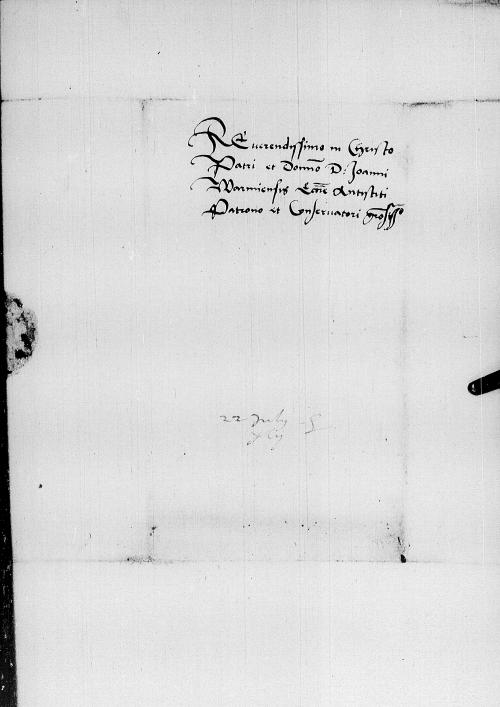 REverendissimo in Christo
Patri et Domno D: Joanni
Warmiensis Eccne Antistiti
Patrono et Conservatori
22 July
xly